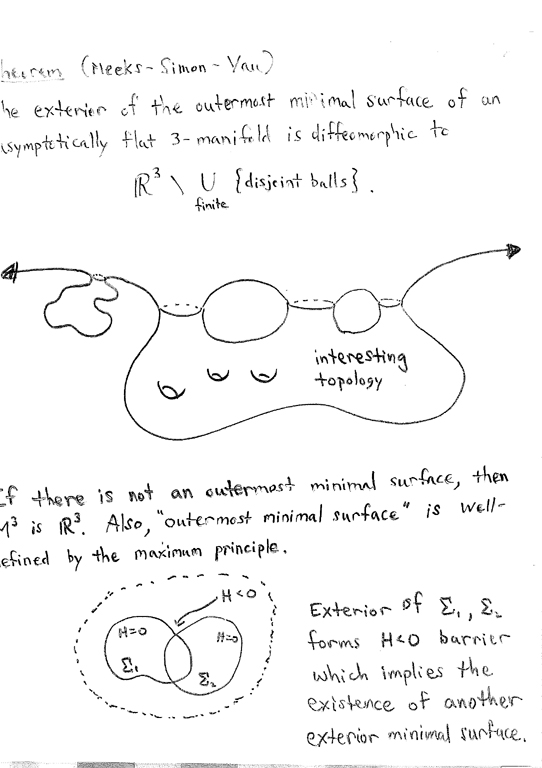 heorem (Meeks-Simon-Yau)
he exterior of the outermost minimal surface of an
symptotically flat 3-manifold is diffeomorphic to
ℝ³ \ ∪ {disjoint balls}.
finite
interesting
topology
If there is not an outermost minimal surface, then
M³ is ℝ³. Also, "outermost minimal surface" is well-
efined by the maximum principle.
H<0
H=0
H=0
Σ₁
Σ₂
Exterior of Σ₁, Σ₂
forms H<0 barrier
which implies the
existence of another
exterior minimal surface.